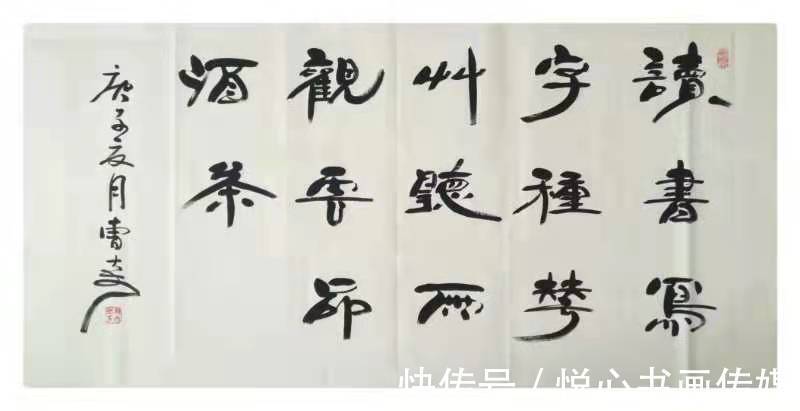 讀書寫
字種花
艸聽雨
觀雲品
酒茶
庚子夏月曹
快传号 / 悦心书画传媒